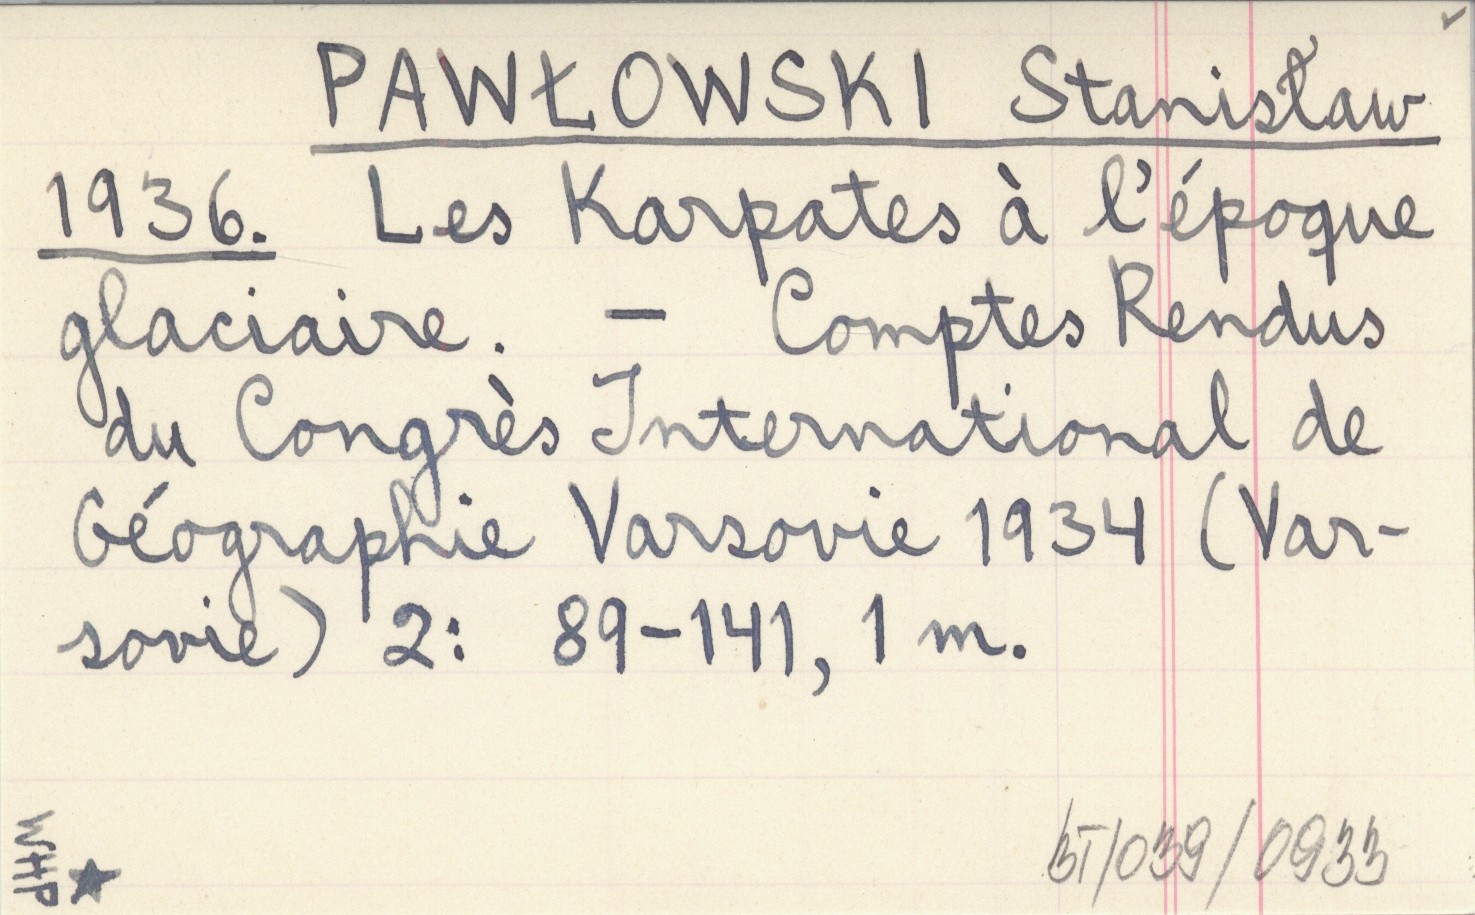 PAWŁOWSKI Stanisław
1936. Les Karpates à l'époque
glaciaire. - Comptes Rendus
du Congrès International de
Géographie Varsovie 1934 (Var-
sovie) 2: 89-141, 1 m.
WHP
BT/039/0933